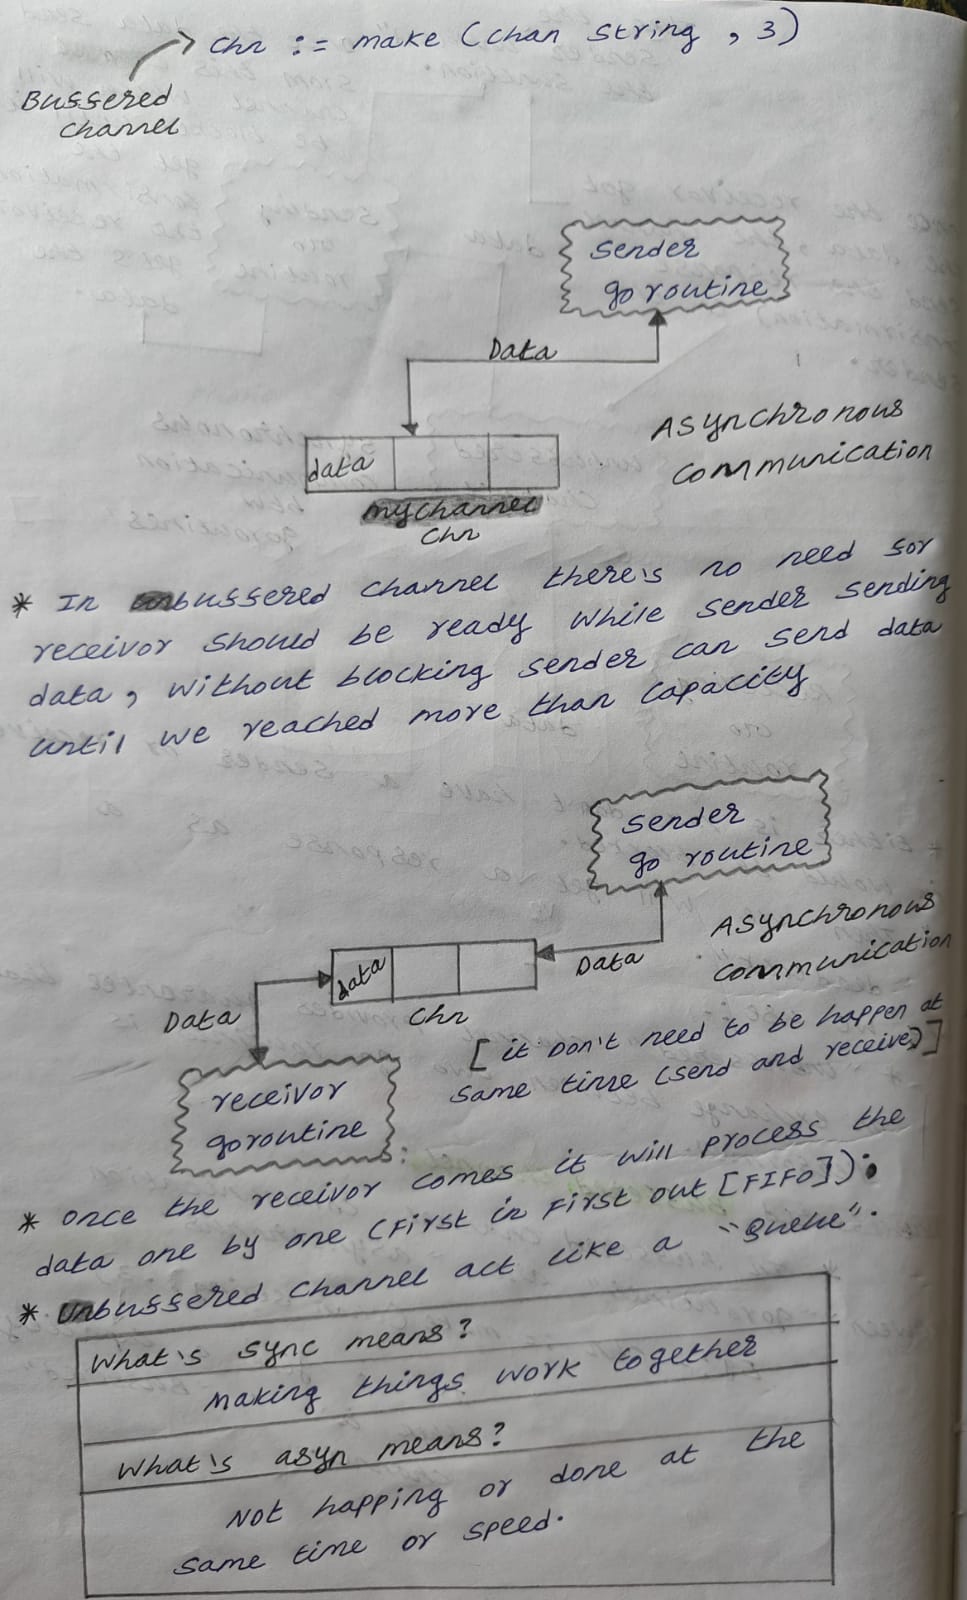 chn := make (chan string , 3)
Buffered
channel
sender
go routine
Data
data
Asynchronous
communication
mychannel
chn
* In buffered channel there's no need for
receivor should be ready while sender sending
data, without blocking sender can send data
until we reached more than capacity
sender
go routine
Asynchronous
communication
Data
data
chn
Data
[ it Don't need to be happen at
same time (send and receive)]
receivor
goroutine
* once the receivor comes it will process the
data one by one (First in First out [FIFO]).
* buffered channel act like a "queue".
What's sync means?
Making things work together
What's asyn means?
Not happing or done at the
same time or speed.